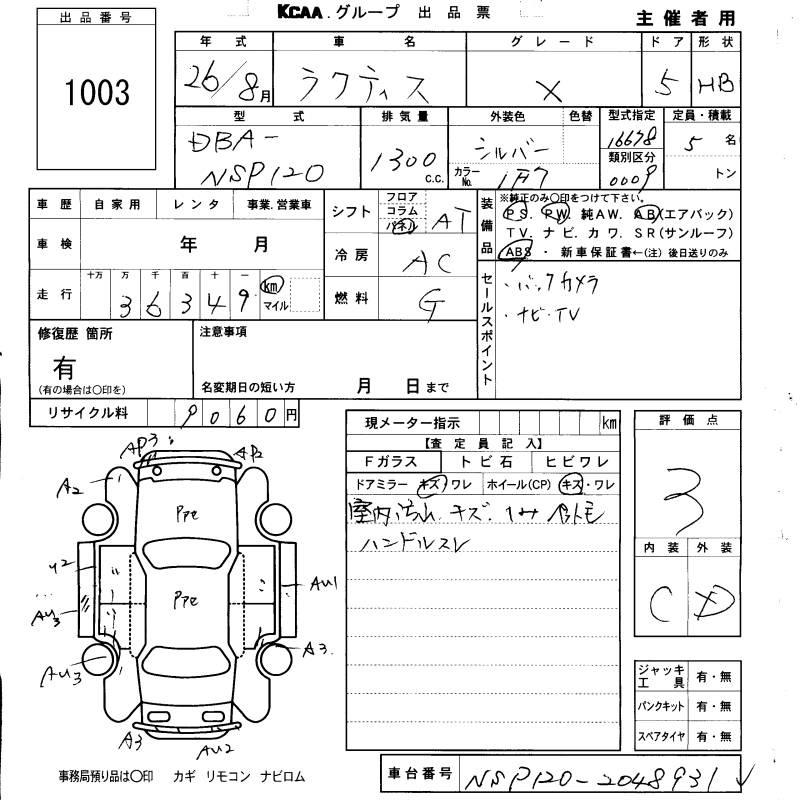 KCAA.グループ 出品票
主催者用
出品番号
1003
年式 車名 グレード ドア 形状
26/8月 ラクティス X 5 HB
型式 排気量 外装色 色替 型式指定 定員・積載
DBA-
NSP120
1300 c.c.
シルバー
カラーNo. 1F7
16678
類別区分
0009
5 名
トン
車歴 自家用 レンタ 事業.営業車
車検 年 月
走行 十万 万 千 百 十 一
3 6 3 4 9 km マイル
シフト フロア コラム パネル AT
冷房 AC
燃料 G
装備品
※純正のみ〇印をつけて下さい。
PS. PW. 純AW. AB(エアバック)
TV. ナビ. カワ. SR(サンルーフ)
ABS ・ 新車保証書←(注) 後日送りのみ
セールスポイント
・バックカメラ
・ナビ・TV
修復歴 箇所
有
(有の場合は〇印を)
注意事項
名変期日の短い方 月 日まで
リサイクル料 9060円
現メーター指示 km
【査定員記入】
Fガラス トビ石 ヒビワレ
ドアミラー キズ/ワレ ホイール(CP) キズ・ワレ
室内汚れ キズ.
ハンドルスレ
評価点
3
内装 外装
C D
ジャッキ工具 有・無
パンクキット 有・無
スペアタイヤ 有・無
AP3 AP2
A2
PPe
Y2
PPe
AU1
AU3
A3
AU3
A3
AU2
事務局預り品は〇印 カギ リモコン ナビロム
車台番号 NSP120-2048931